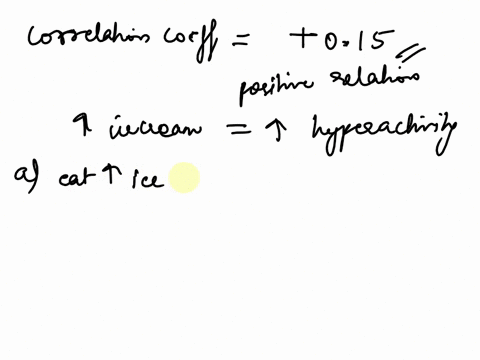 correlation coeff = +0.15
positive relation
↑ icecream = ↑ hyperactivity
a) eat ↑ ice